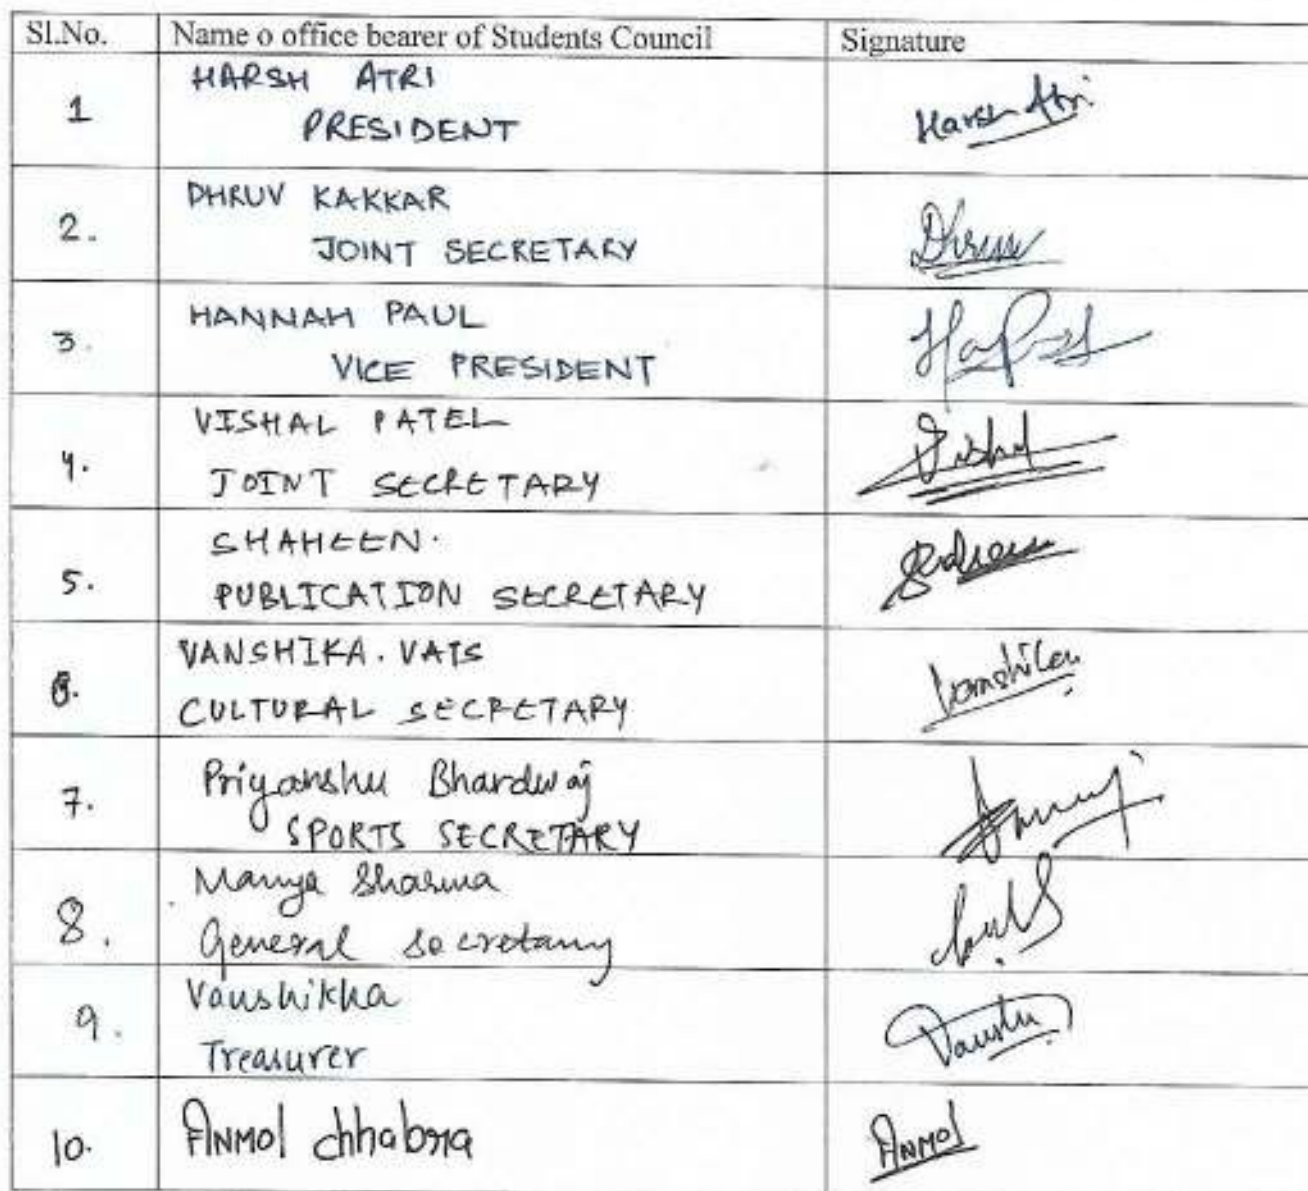 Sl.No. Name o office bearer of Students Council Signature
1 HARSH ATRI
PRESIDENT Harsh Atri
2. DHRUV KAKKAR
JOINT SECRETARY Dhruv
3. HANNAH PAUL
VICE PRESIDENT
4. VISHAL PATEL
JOINT SECRETARY Vishal
5. SHAHEEN.
PUBLICATION SECRETARY
6. VANSHIKA. VATS
CULTURAL SECRETARY Vanshika
7. Priyanshu Bhardwaj
SPORTS SECRETARY
8. Manya Sharma
General Secretary
9. Vanshikha
Treasurer Vanshu
10. ANMOl chhabra ANMOl